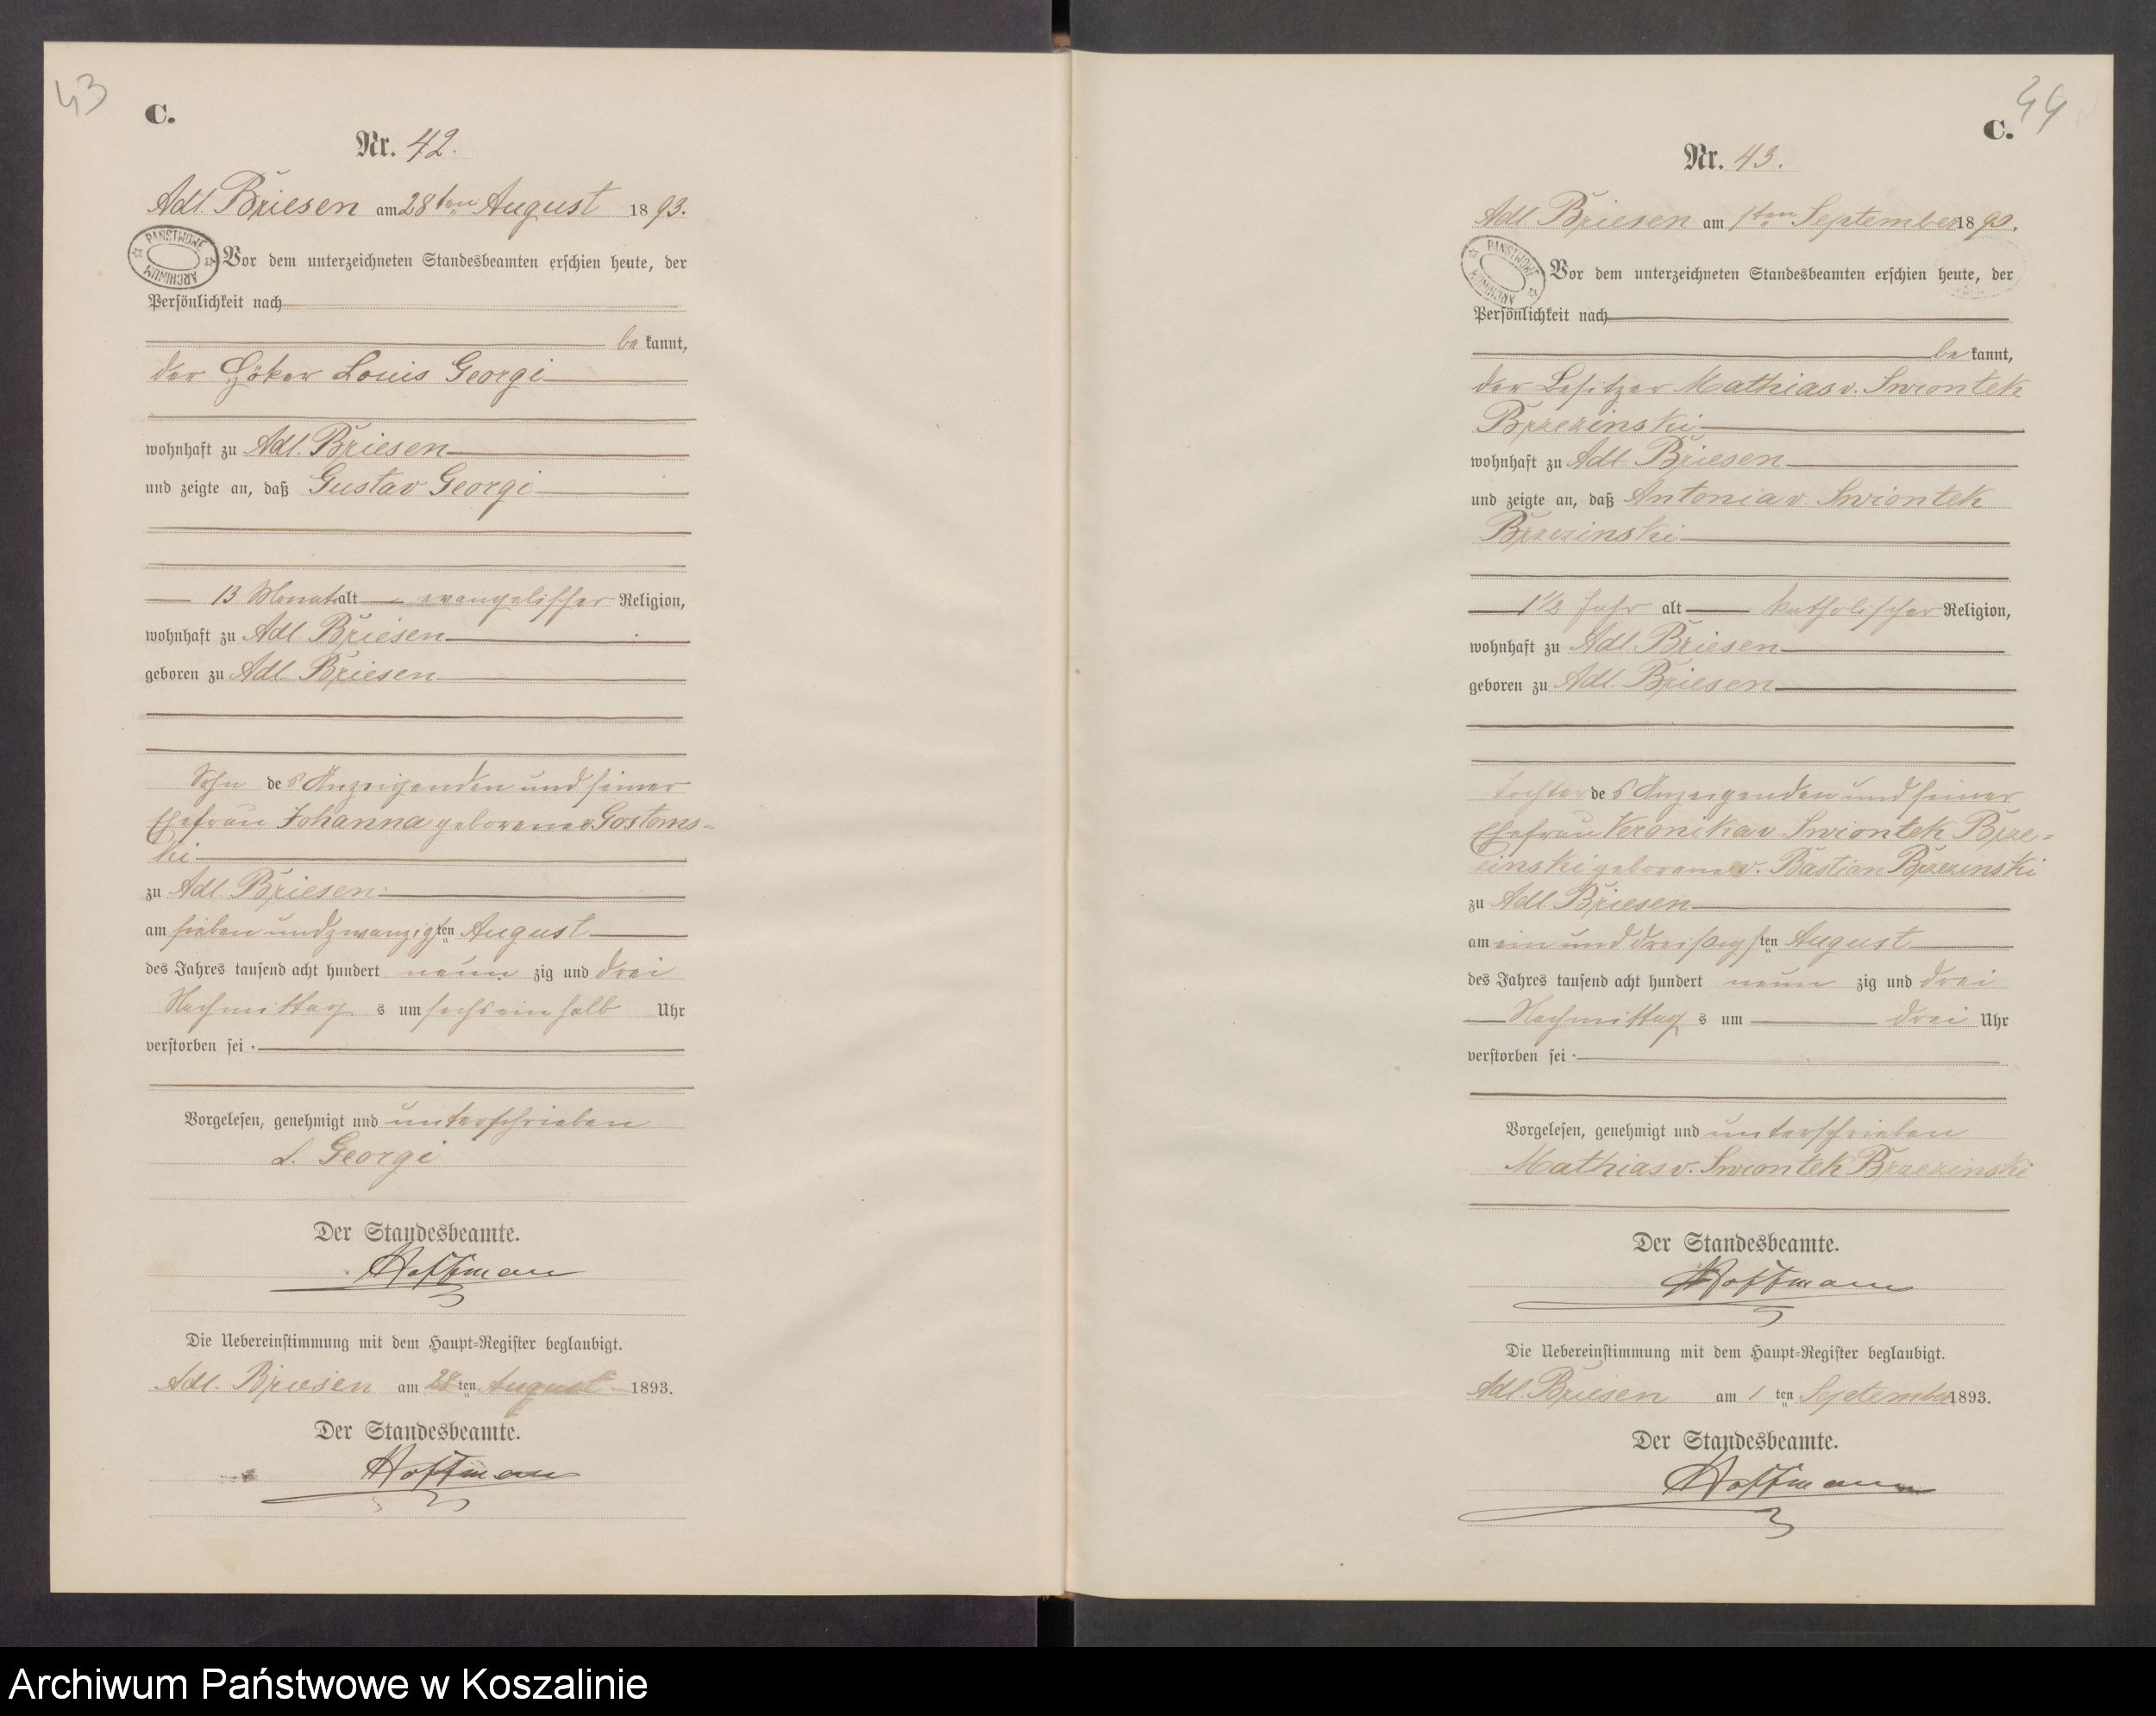 43
C.
Nr. 42.
Adl. Briesen am 28ten August 1893.
PAŃSTWOWE ARCHIWUM
Vor dem unterzeichneten Standesbeamten erschien heute, der
Persönlichkeit nach
bekannt,
der Höker Louis Georgi
wohnhaft zu Adl. Briesen
und zeigte an, daß Gustav Georgi
13 Monate alt evangelischer Religion,
wohnhaft zu Adl. Briesen
geboren zu Adl. Briesen
Sohn des Anzeigenden und seiner
Ehefrau Johanna geborene v. Gostoms-
ki
zu Adl. Briesen
am sieben und zwanzigsten August
des Jahres tausend acht hundert neunzig und drei
Nachmittags um sechs ein halb Uhr
verstorben sei
Vorgelesen, genehmigt und unterschrieben
L. Georgi
Der Standesbeamte.
Hoffmann
Die Uebereinstimmung mit dem Haupt-Register beglaubigt.
Adl. Briesen am 28ten August 1893.
Der Standesbeamte.
Hoffmann
44
C.
Nr. 43.
Adl. Briesen am 1ten September 1893.
PAŃSTWOWE ARCHIWUM
Vor dem unterzeichneten Standesbeamten erschien heute, der
Persönlichkeit nach
bekannt,
der Besitzer Mathias v. Swiontek
Brzezinski
wohnhaft zu Adl. Briesen
und zeigte an, daß Antonia v. Swiontek
Brzezinski
1½ Jahr alt katholischer Religion,
wohnhaft zu Adl. Briesen
geboren zu Adl. Briesen
Tochter des Anzeigenden und seiner
Ehefrau Veronika v. Swiontek Brze-
zinski geborene v. Bastian Brzezinski
zu Adl. Briesen
am ein und dreißigsten August
des Jahres tausend acht hundert neunzig und drei
Nachmittags um drei Uhr
verstorben sei
Vorgelesen, genehmigt und unterschrieben
Mathias v. Swiontek Brzezinski
Der Standesbeamte.
Hoffmann
Die Uebereinstimmung mit dem Haupt-Register beglaubigt.
Adl. Briesen am 1ten September 1893.
Der Standesbeamte.
Hoffmann
Archiwum Państwowe w Koszalinie